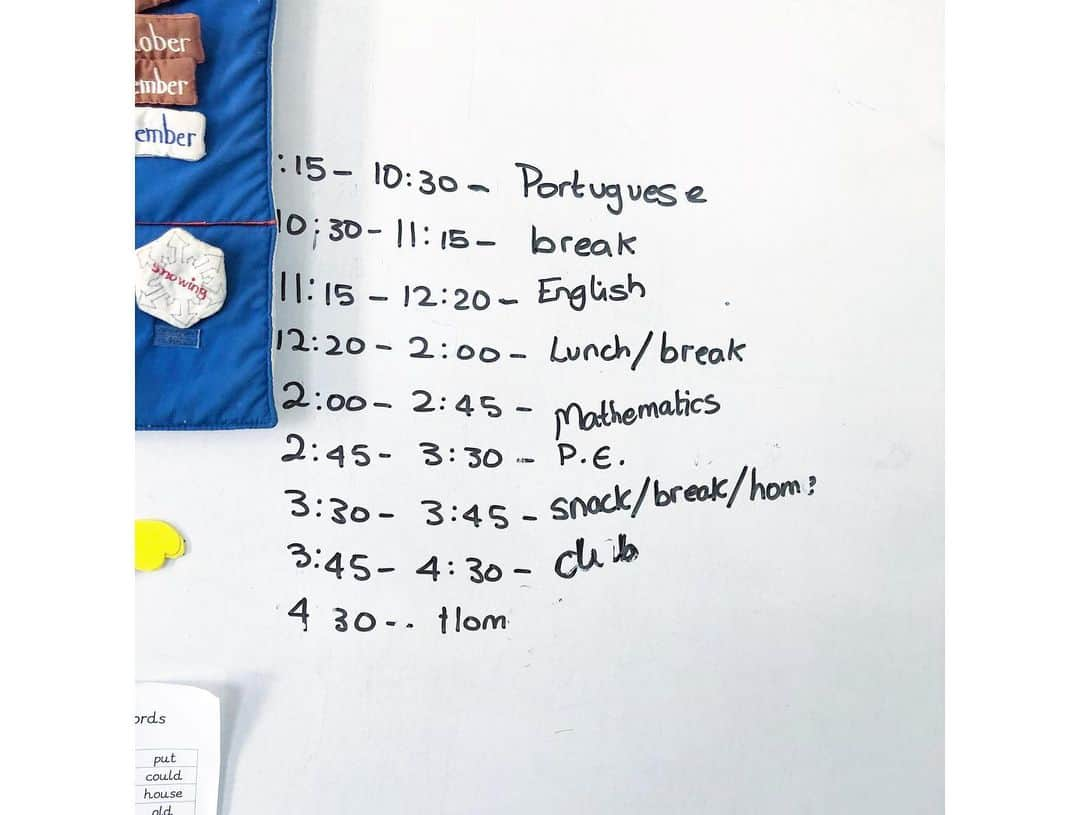 ober
ember
ember
snowing
:15 - 10:30 - Portuguese
10:30 - 11:15 - break
11:15 - 12:20 - English
12:20 - 2:00 - Lunch/break
2:00 - 2:45 - Mathematics
2:45 - 3:30 - P.E.
3:30 - 3:45 - snack/break/hom
3:45 - 4:30 - club
4 30 - - Hom
ords
put
could
house
old